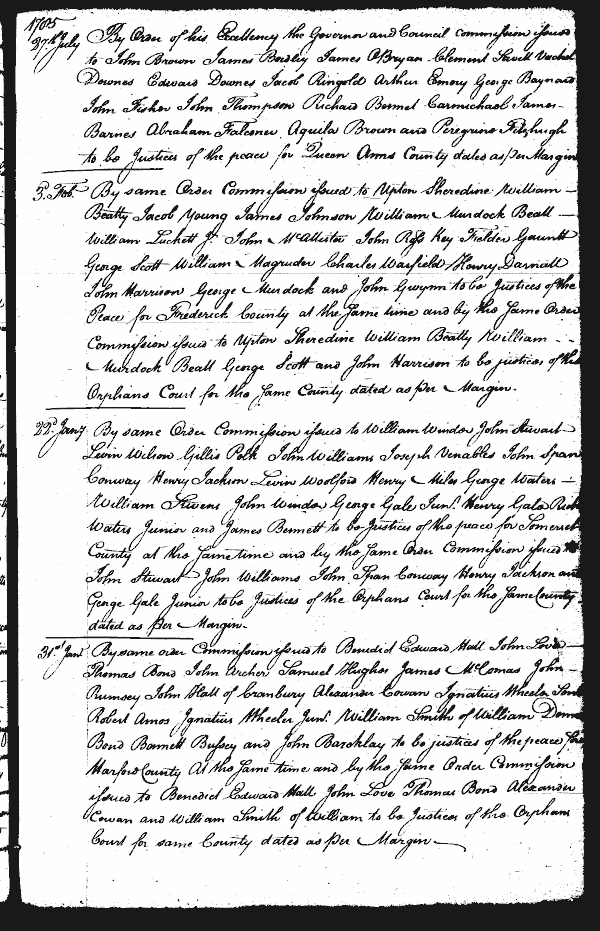 1785
27th July By Order of his Excellency the Governor and Council commission issued
to John Brown James Bordley James OBryan Clement Sewell Vachel
Downes Edward Downes Jacob Ringold Arthur Emory George Baynard
John Fisher John Thompson Richard Bennet Carmichael James
Barnes Abraham Falconer Aquila Brown and Peregrine Fitzhugh
to be Justices of the peace for Queen Anns County dates as per Margin
3. Feb. By same Order Commission issued to Upton Sheredine William
Beatty Jacob Young James Johnson William Murdock Beall
William Luckett Jr. John McAllister John Ross Key Fielder Gauntt
George Scott William Magruder Charles Warfield Henry Darnall
John Harrison George Murdock and John Gwynn to be Justices of the
Peace for Frederick County at the same time and by the same Order
Commission issued to Upton Sheredine William Beatty William
Murdock Beall George Scott and John Harrison to be justices of the
Orphans Court for the same County dated as per Margin.
22d. Jany By same Order Commission issued to William Winder John Stewart
Levin Wilson Gillis Polk John Williams Joseph Venables John Span
Conway Henry Jackson Levin Woolford Henry Miles George Waters
William Stevens John Winder George Gale Junr. Henry Gale Rich
Waters Junior and James Bennett to be Justices of the peace for Somerset
County at the same time and by the same Order Commission issued to
John Stewart John Williams John Span Conway Henry Jackson and
George Gale Junior to be Justices of the Orphans Court for the same County
dated as per Margin.
31st Jany By same order Commission issued to Benedict Edward Hall John Love
Thomas Bond John Archer Samuel Hughes James McComas John
Rumsey John Hall of Cranbury Alexander Cowan Ignatius Wheeler
Robert Amos Ignatius Wheeler Junr. William Smith of William
Bond Barnett Bussey and John Barcklay to be justices of the peace for
Harford County At the same time and by the same Order Commission
issued to Benedict Edward Hall John Love Thomas Bond Alexander
Cowan and William Smith of William to be Justices of the Orphans
Court for same County dated as per Margin